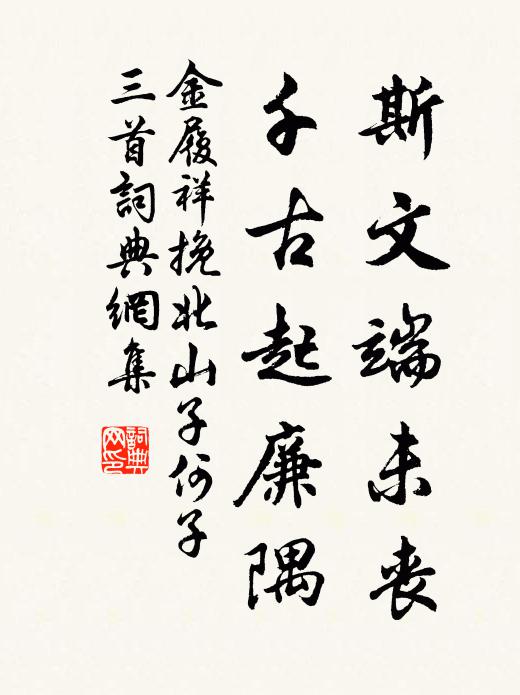 斯文端未丧
千古起廉隅
金履祥挽北山子何子
三首詞典網集
詞典网印